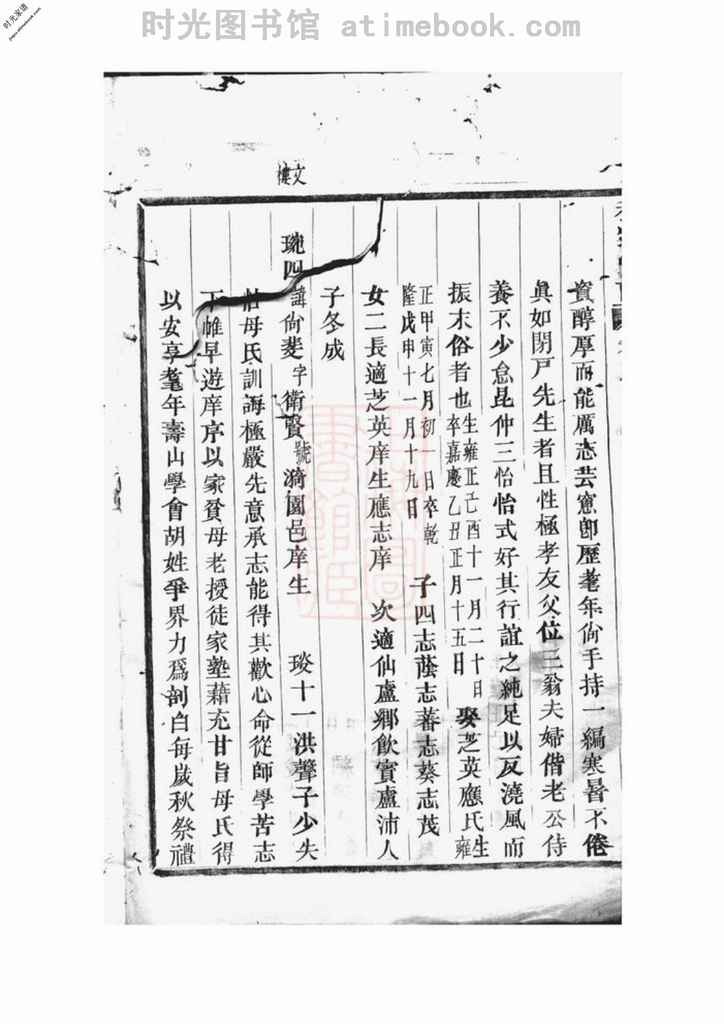 时光图书馆 atimebook.com
时光家谱
資醇厚而能厲志芸窻卽歷耄年尙手持一編寒暑不倦
眞如閉戸先生者且性極孝友父位三翁夫婦偕老公侍
養不少怠昆仲三怡怡式好其行誼之純足以反澆風而
振末俗者也生雍正己酉十一月二十日卒嘉慶乙丑正月十五日娶芝英應氏生雍
正甲寅七月初一日卒乾隆戊申十一月十九日 子四志蔭志蕃志葵志茂
女二長適芝英庠生應志庠 次適仙廬鄉飲賓盧沛人
子冬成
文樓
珫四諱尙斐字衛賢號漪園邑庠生 琰十一洪聲子少失
怙母氏訓誨極嚴先意承志能得其歡心命從師學苦志
下帷早遊庠序以家貧母老授徒家塾藉充甘旨母氏得
以安享耄年壽山學會胡姓爭界力爲剖白每歲秋祭禮